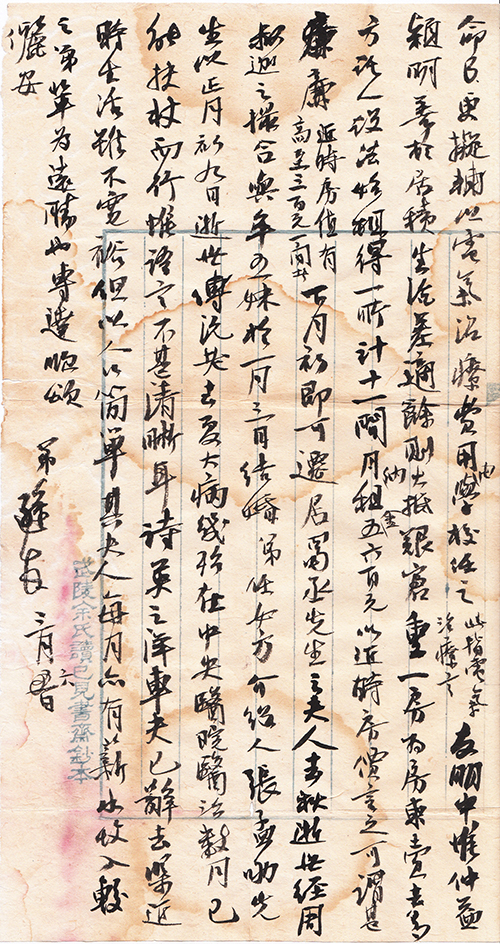 命只更擬輔以電氣治療費用由學校任之此指電氣治療言友朋中惟仲益
穎明善於居積生活差適餘則大抵艱窘重一房為房東賣去
方託人設法始租得一所計十一間月租納金五六百元以近時房價言之可謂甚
廉廉近時房值有高至三百元一間者下月初即可遷居冒丞先生之夫人去秋逝世經用
叔迦之撮合與年之妹於一月三日結婚弟任女方介紹人張孟劬先
生以正月初九日逝世傅沅叔去夏大病幾殆在中央醫院醫治數月已
能扶杖而行惟語言不甚清晰耳詩英之洋車夫已辭去渠近
時生活雖不寬裕但以人口簡單其夫人每月亦有薪水收入較
之弟輩為遠勝也專達順頌
儷安
弟 三月六
武陵余氏讀已見書齋鈔本